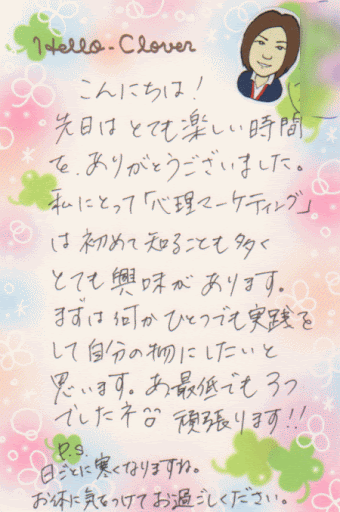 Hello-Clover
こんにちは!
先日はとても楽しい時間
を、ありがとうございました。
私にとって「心理マーケティング」
は初めて知ることも多く
とても興味があります。
まずは何かひとつでも実践を
して自分の物にしたいと
思います。あ最低でも3つ
でしたネ^^ 頑張ります!!
P.S.
日ごとに寒くなりますね。
お体に気をつけてお過ごしください。